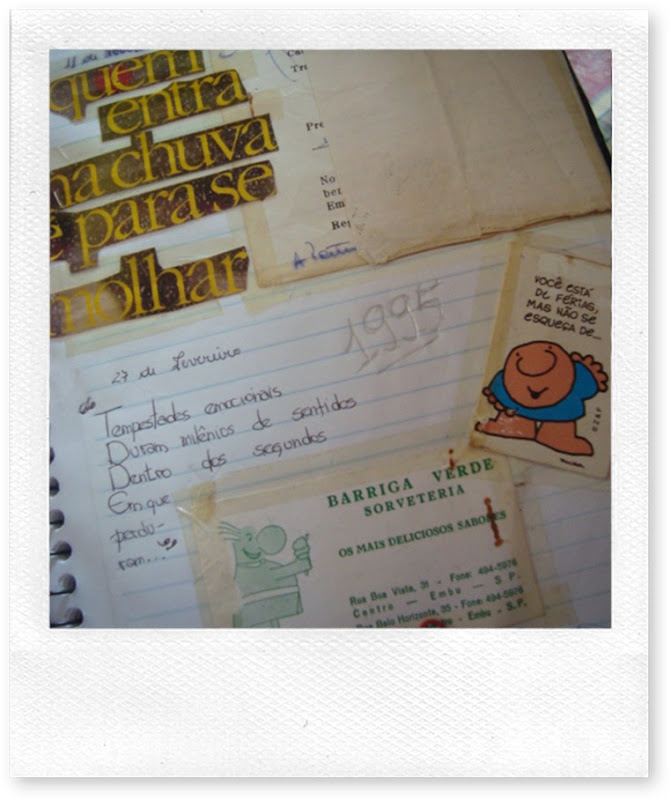 11 de
quem
entra
na chuva
é para se
molhar
Pre
No
ber
Em
1995
27 de Fevereiro
Tempestades emocionais
Duram milênios de sentidos
Dentro dos segundos
Em que
perdu-
ram...
VOCÊ ESTÁ
DE FÉRIAS,
MAS NÃO SE
ESQUEÇA DE...
OZAF
BARRIGA VERDE
SORVETERIA
OS MAIS DELICIOSOS SABORES
Rua Boa Vista, 31 - Fone: 494-5976
Centro - Embu - S.P.
Rua Belo Horizonte, 35 - Fone: 494-5976
- Embu - S.P.